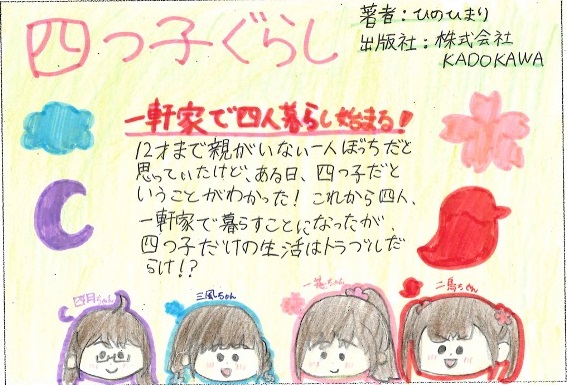 四つ子ぐらし
著者：ひのひまり
出版社：株式会社
KADOKAWA
一軒家で四人暮らし始まる！
12才まで親がいない一人ぼっちだと
思っていたけど、ある日、四つ子だと
いうことがわかった！これから四人、
一軒家で暮らすことになったが、
四つ子だけの生活はトラブルだ
らけ！？
四月ちゃん
三風ちゃん
一花ちゃん
二鳥ちゃん